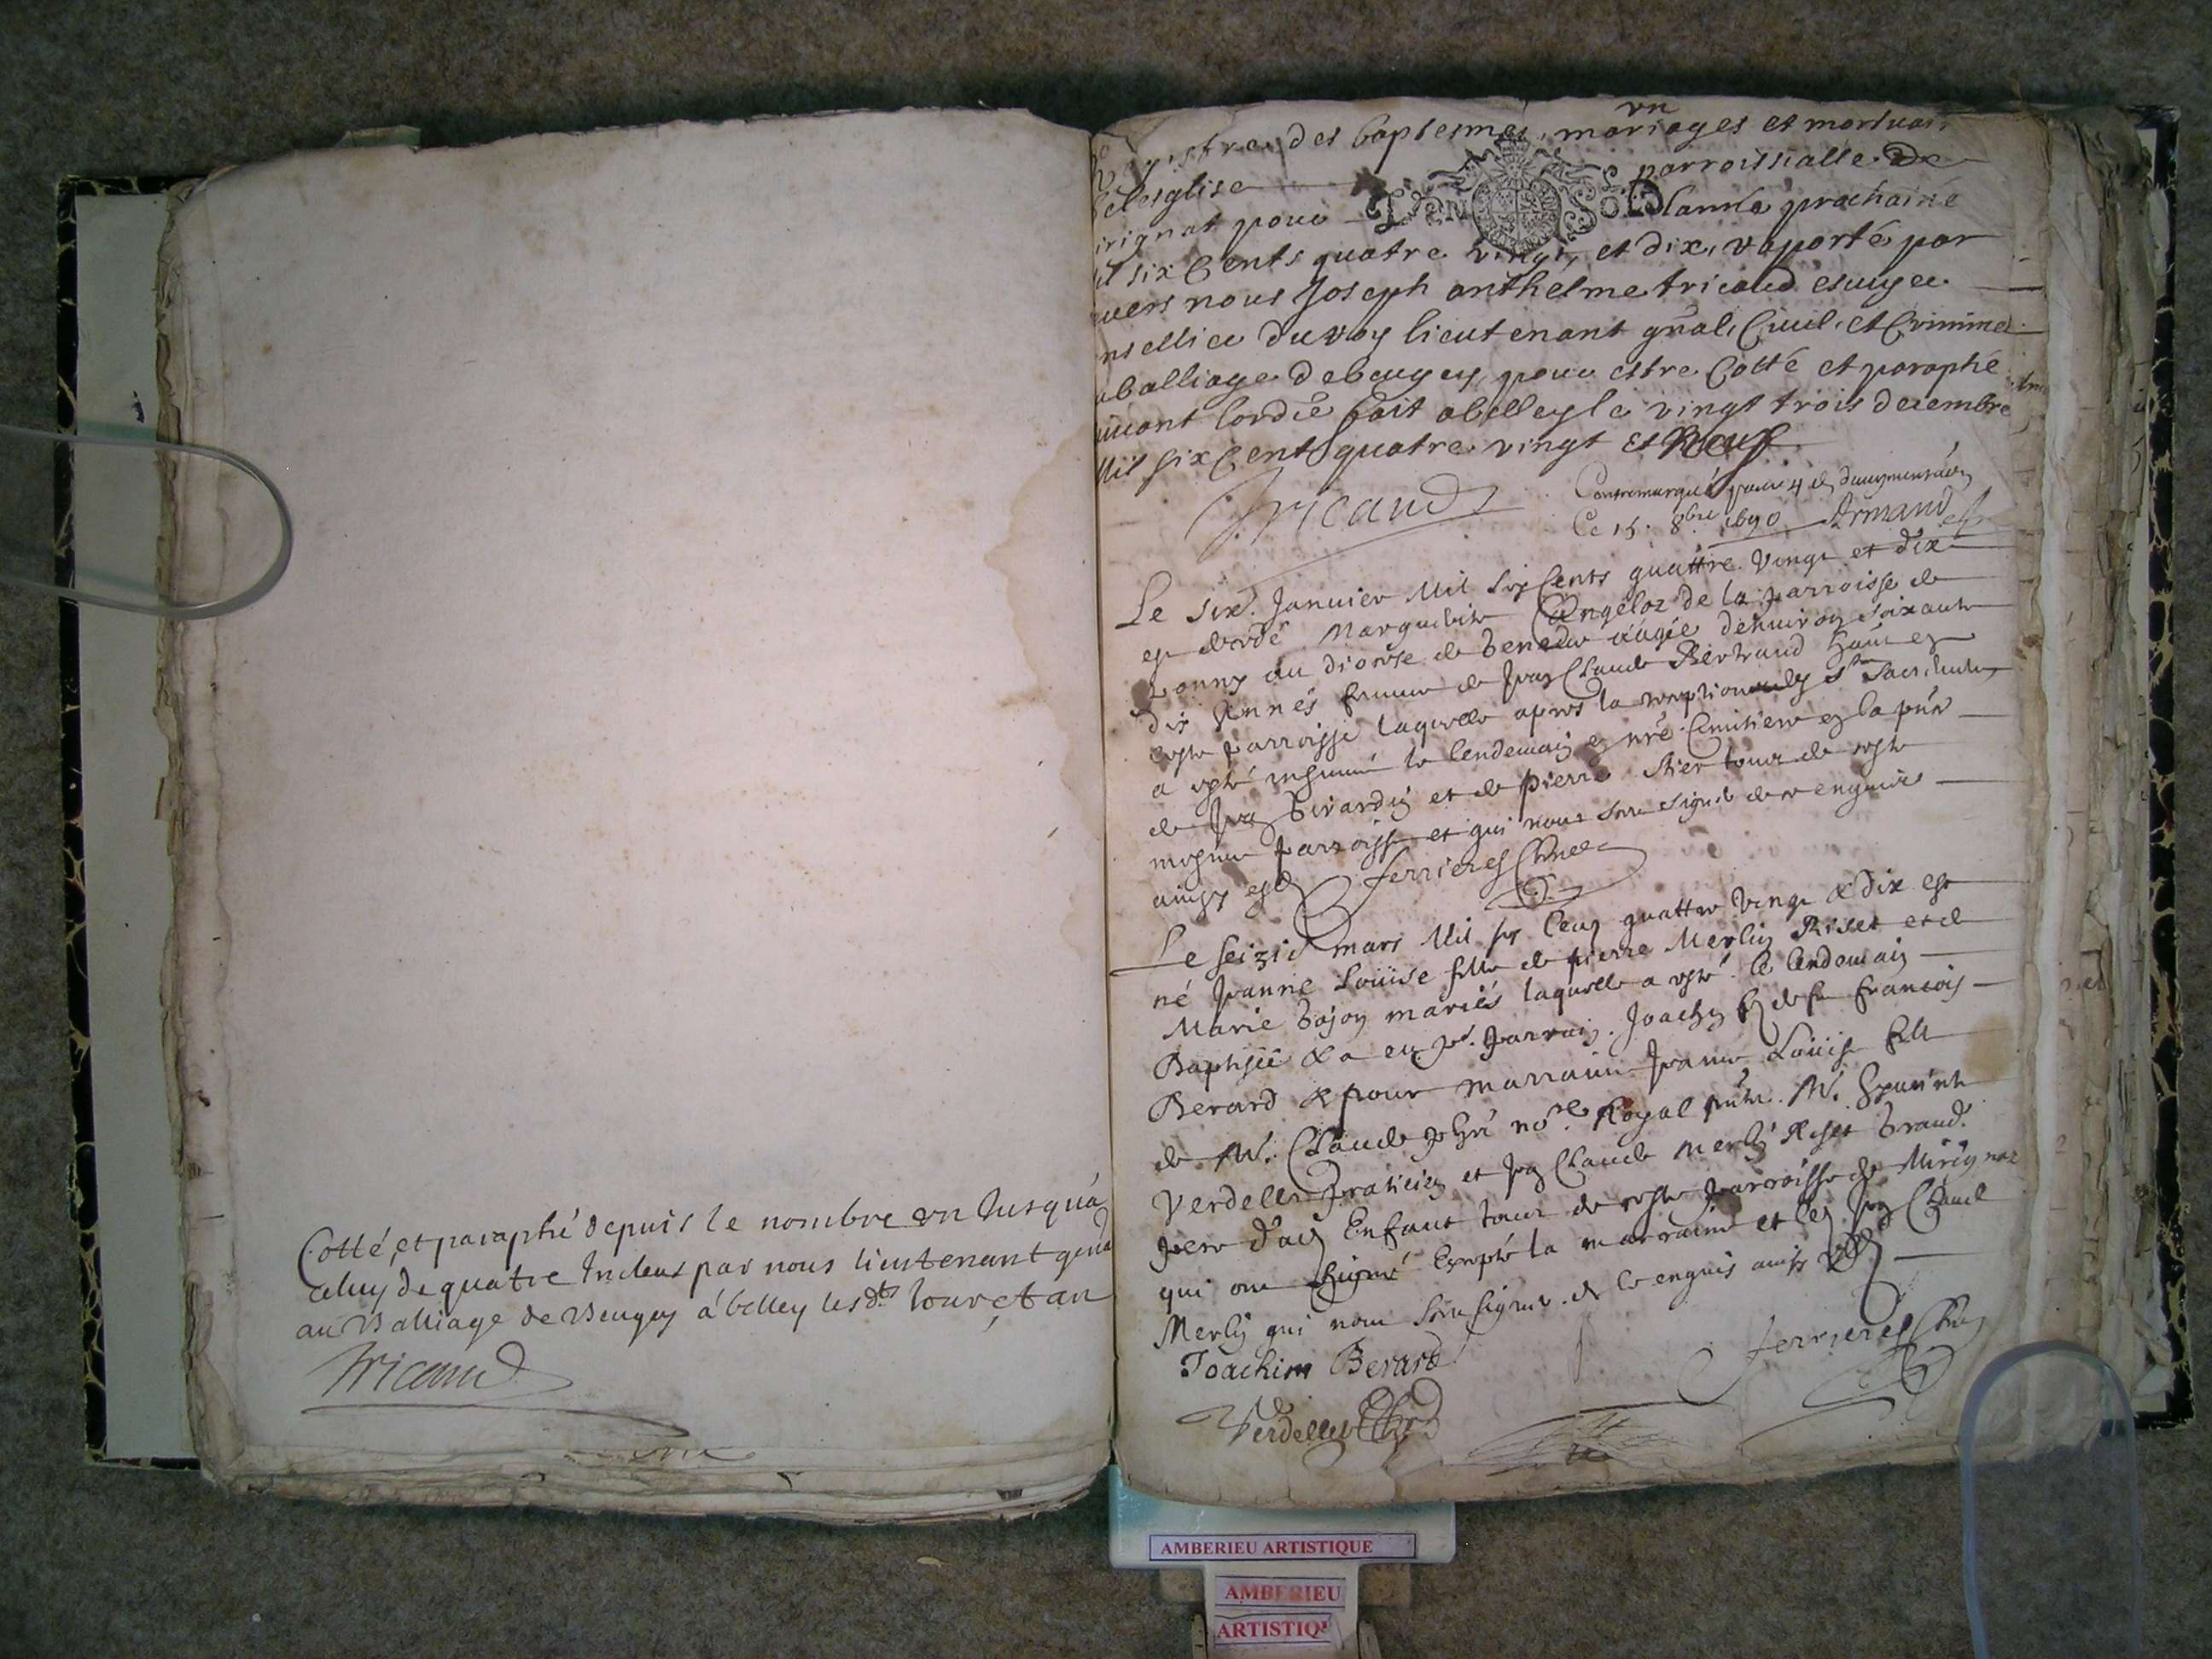 Cotté et paraphé depuis le nombre un Jusqu'a
celuy de quatre Inclus par nous lieutenant gnâl
au Balliage de Beugey á belley lesdts Jour et an
Tricaud
un
Registre des baptesmes, mariages et mortuai
de lesglise parroissialle De
irignat pour lannée prochaine
il six Cents quatre vingt, et dix, raporté par
uers nous Joseph anthelme tricaud escuyer
nsellier du roy lieutenant gnâl, Ciuil, et Criminel
balliage de beugey, pour estre Cotté et paraphé
uiuant lordce fait a belley le vingt trois decembre
Mil six Cent quatre vingt et Neuf
Tricaud
Contremarqué pour 4 d. d'augmentâon
Ce 15. 8bre 1690 Armand
Le six. Januier Mil six Cents quattre Vingt et dix
est decedé Marguerite de la parroisse de
au diocese de agée denuiron soixante
dix Années femme de Jean Claude Bertrand
ceste parroisse laquelle apres la reception des Sts Sacrements
a esté inhumé le lendemain en nre Cemitiere en la pnce
de Jean Girardin et de pierre tous de ceste
mesme parroisse et qui n'ont sceu signé de ce enquis
ainsy est Ferrieres Curé
Le seizie mars Mil six Cens quattre Vingt & dix est
né Jeanne Louise fille de pierre Merlin Riset et de
Marie Bojon mariés laquelle a esté le lendemain
Baptisée & a eu pr. parrain. Joachin fils de fu francois
Berard & pour marraine Jeanne Louise fille
de Mr. Claude nore Royal pnts. Mr.
Verdellet praticien et Jean Claude Merlin Riset Grand
pere dud Enfant tous de ceste parroisse de Mirignat
qui ont signé Excepté la marraine et led Jean Claude
Merlin qui n'ont sceu signer de ce enquis ainsi est
Joachim Berard
Ferrieres Curé
Verdellet
AMBERIEU ARTISTIQUE
AMBERIEU
ARTISTIQ